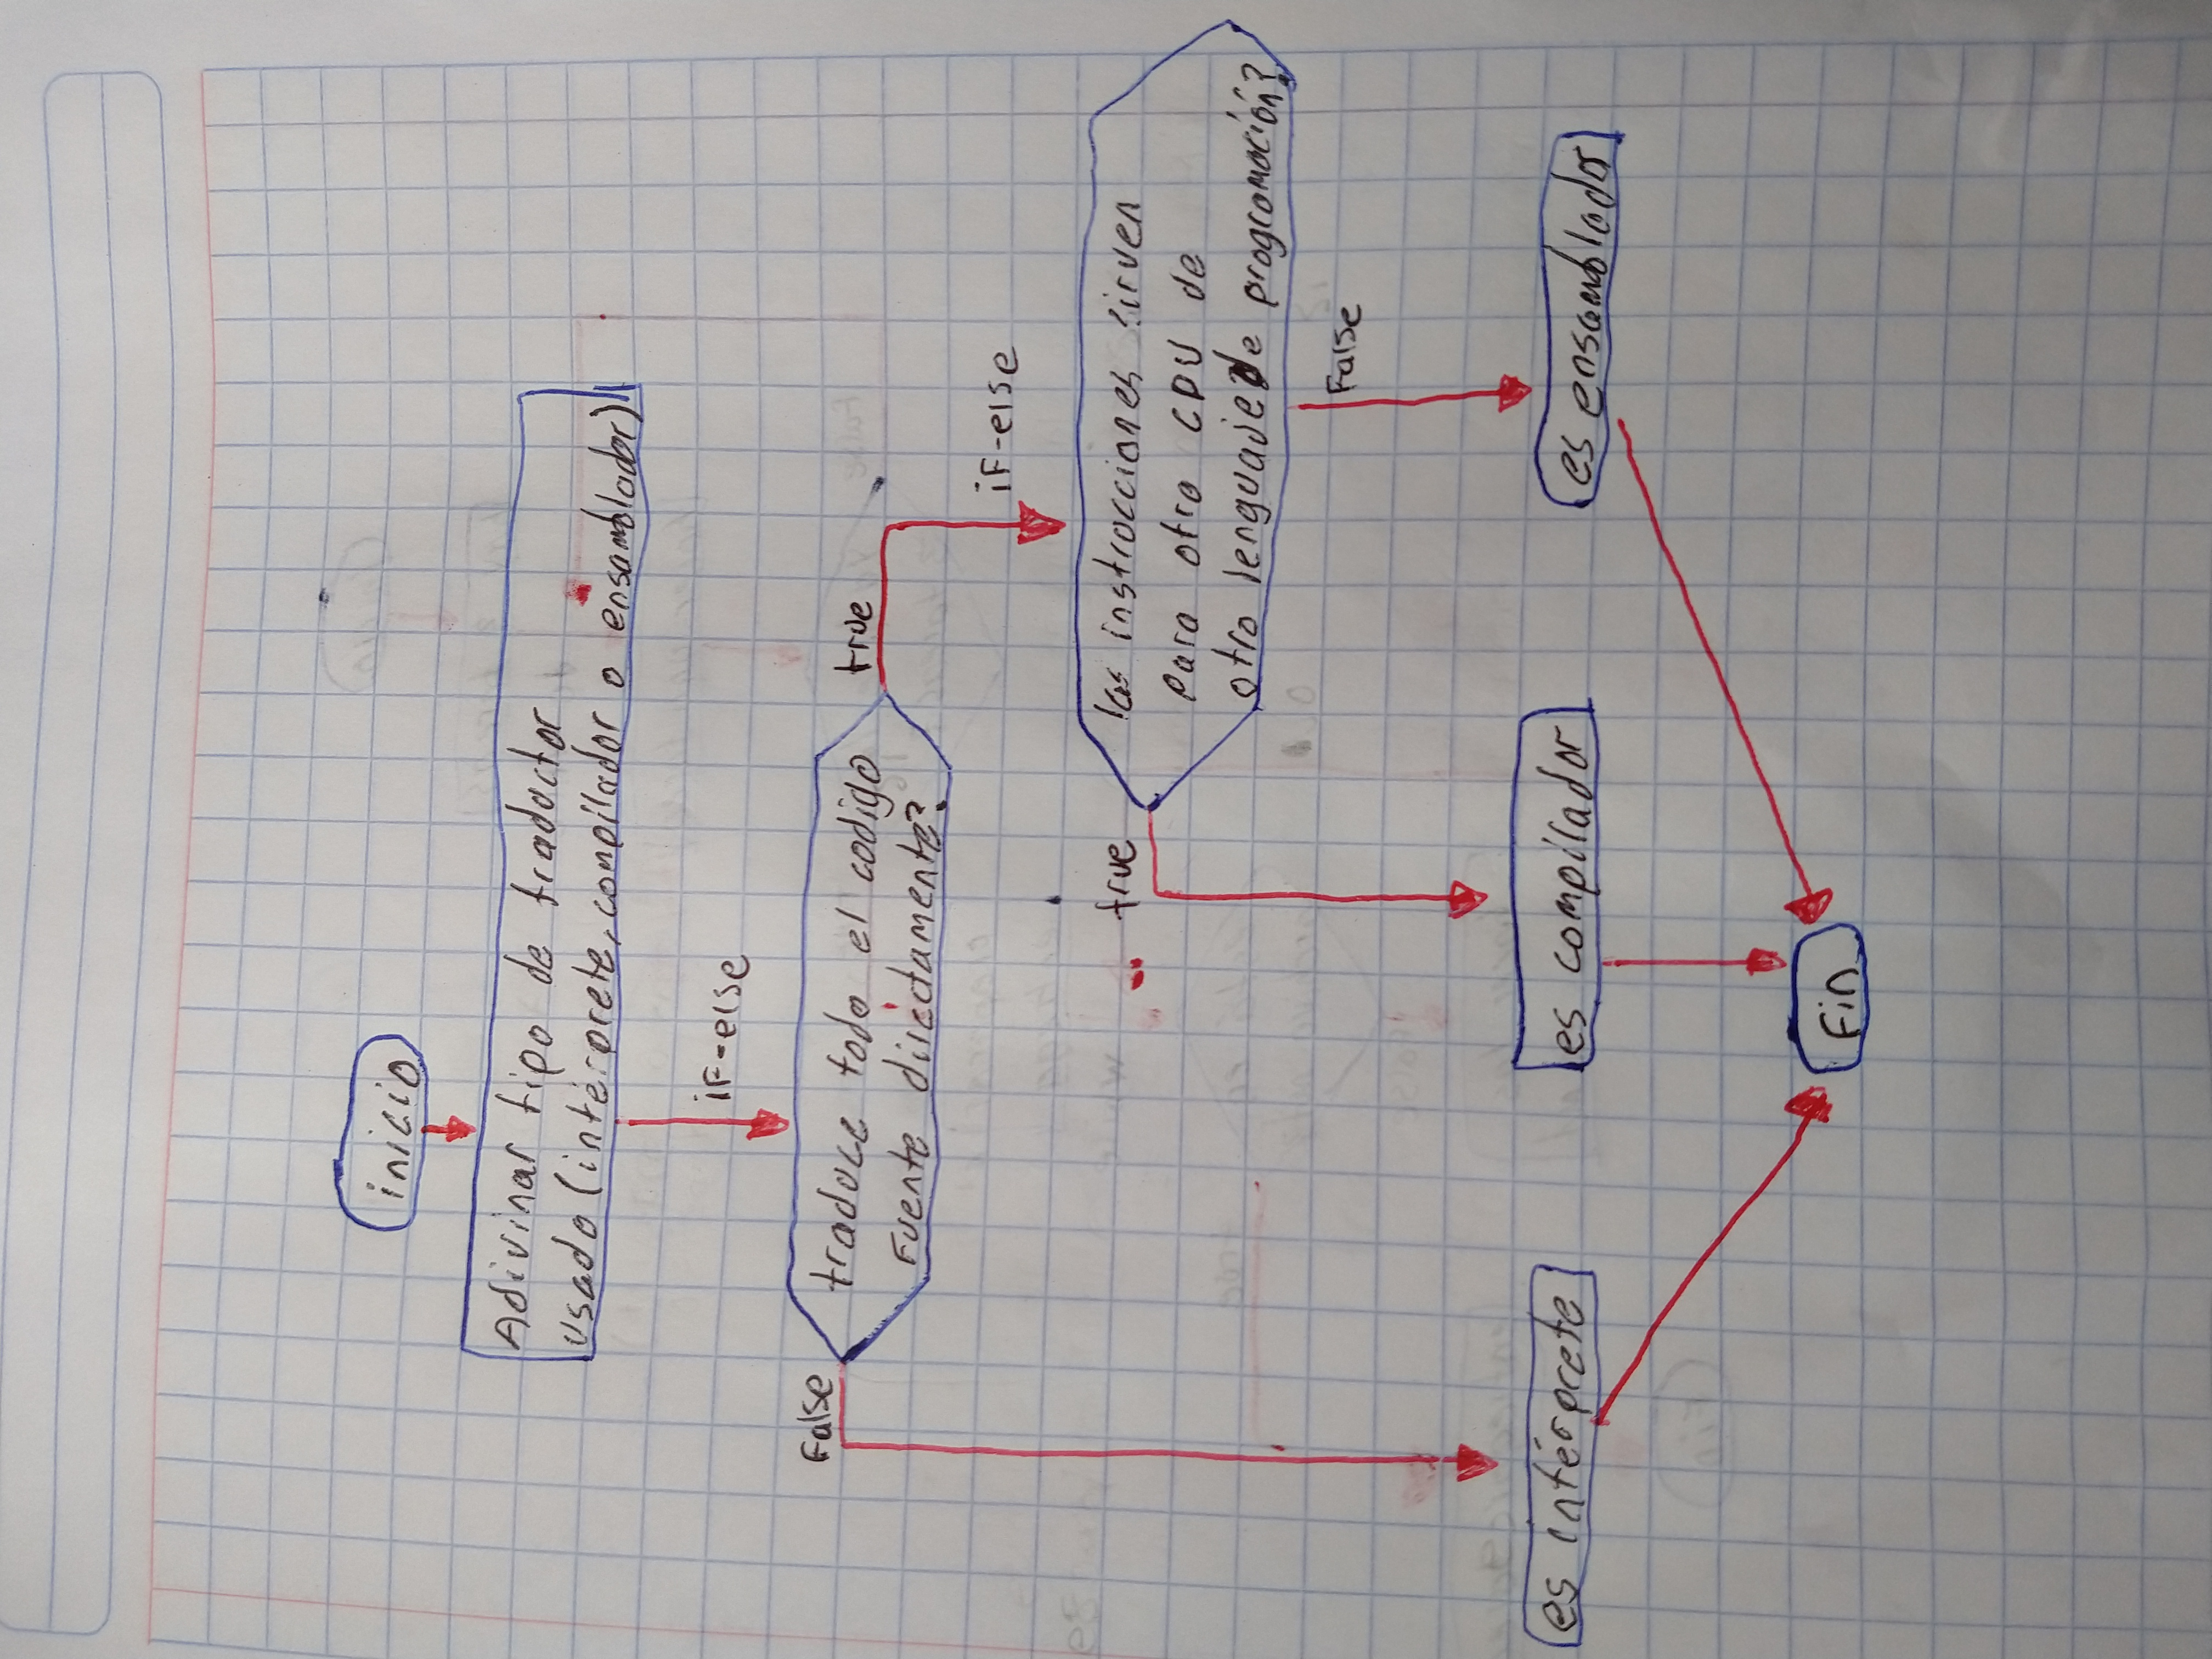 inicio
Adivinar tipo de traductor
usado (intérprete, compilador o ensamblador)
iF-else
False
traduce todo el codigo
Fuente directamente?
true
iF-else
true
las instrucciones sirven
para otro CPU de
otro lenguaje de programación?
False
es intérprete
es compilador
es ensamblador
Fin